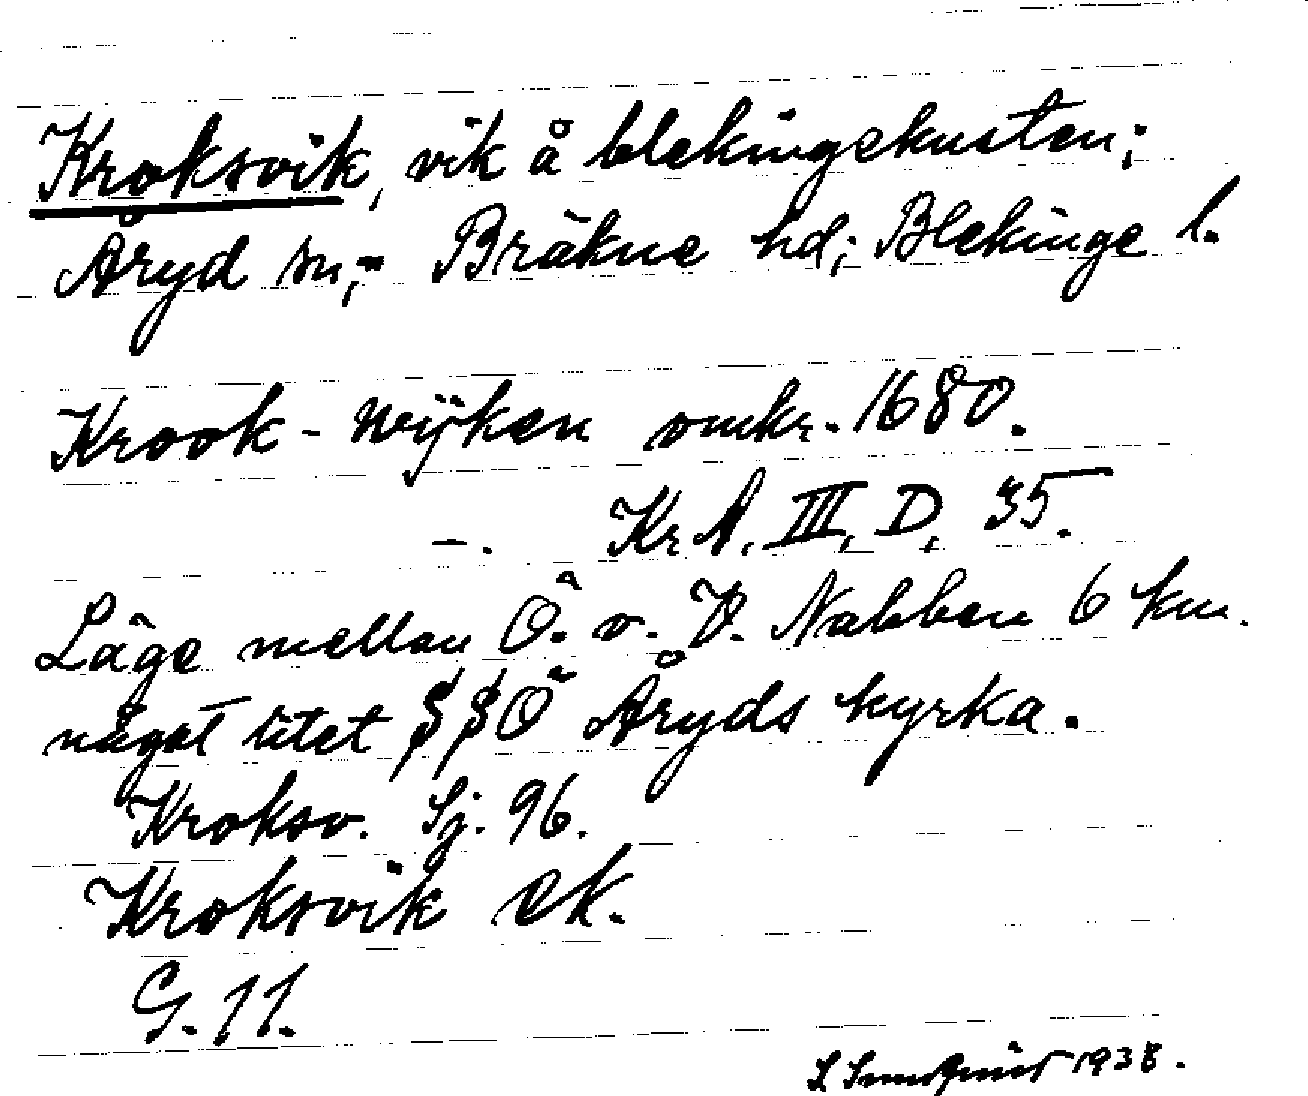 Kroksvik, vik å blekingekusten;
Åryd sn;- Bräkne hd; Blekinge l.
Krook-wÿken omkr. 1680.
-. Kr A. III, D, 35.
Läge mellan Ö. o. V. Nabben 6 km.
något litet SSÖ Åryds kyrka.
Kroksv. Sj. 96.
Kroksvik ek.
G. 11.
Sundqvist 1938.